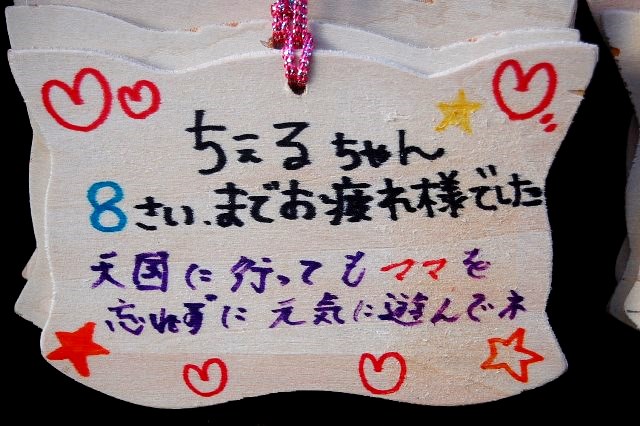 ちぇるちゃん
8さい、までお疲れ様でした
天国に行ってもママを
忘れずに元気に遊んでネ